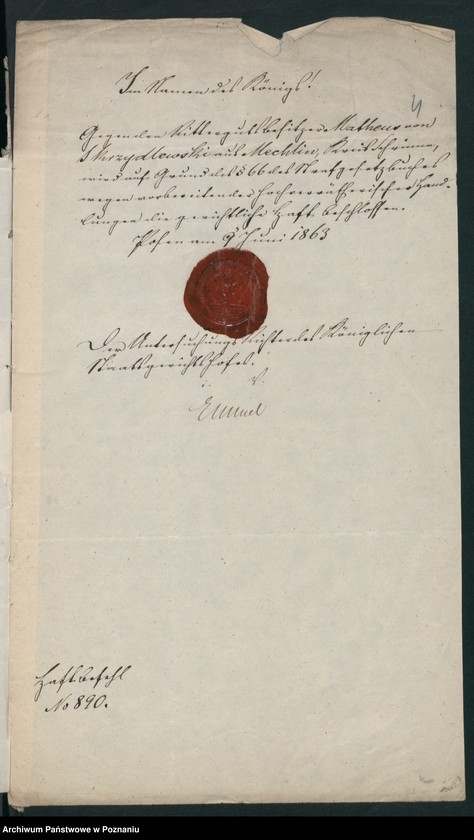 Im Namen des Königs!
4
Gegen den Rittergutsbesitzer Matheus von
Skrzydlewski aus Mechlin, Kreis Schrimm,
wird auf Grund des § 66 des Strafgesetzbuches
wegen vorbereitender hochverrätherischer Hand-
lungen die gerichtliche Haft beschlossen.
Posen am 9 Juni 1863
Der Untersuchungs Richter des Königlichen
Staatsgerichtshofes.
i. V.
Haftbefehl
No 890.
Archiwum Państwowe w Poznaniu